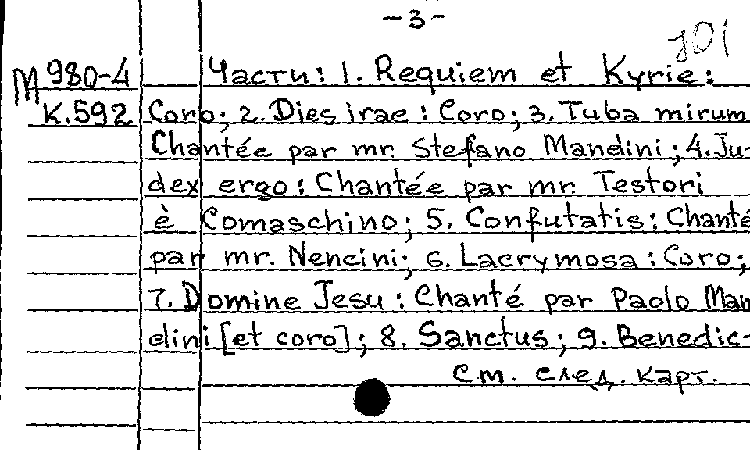 -3-
101
М 980-4 Части: 1. Requiem et Kyrie:
К.592 Coro; 2. Dies irae: Coro; 3. Tuba mirum
Chantée par mr. Stefano Mandini; 4. Ju-
dex ergo: Chantée par mr. Testori
è Comaschino; 5. Confutatis: Chanté
par mr. Nencini; 6. Lacrymosa: Coro;
7. Domine Jesu: Chanté par Paolo Man
dini [et coro]; 8. Sanctus; 9. Benedic-
см. след. карт.